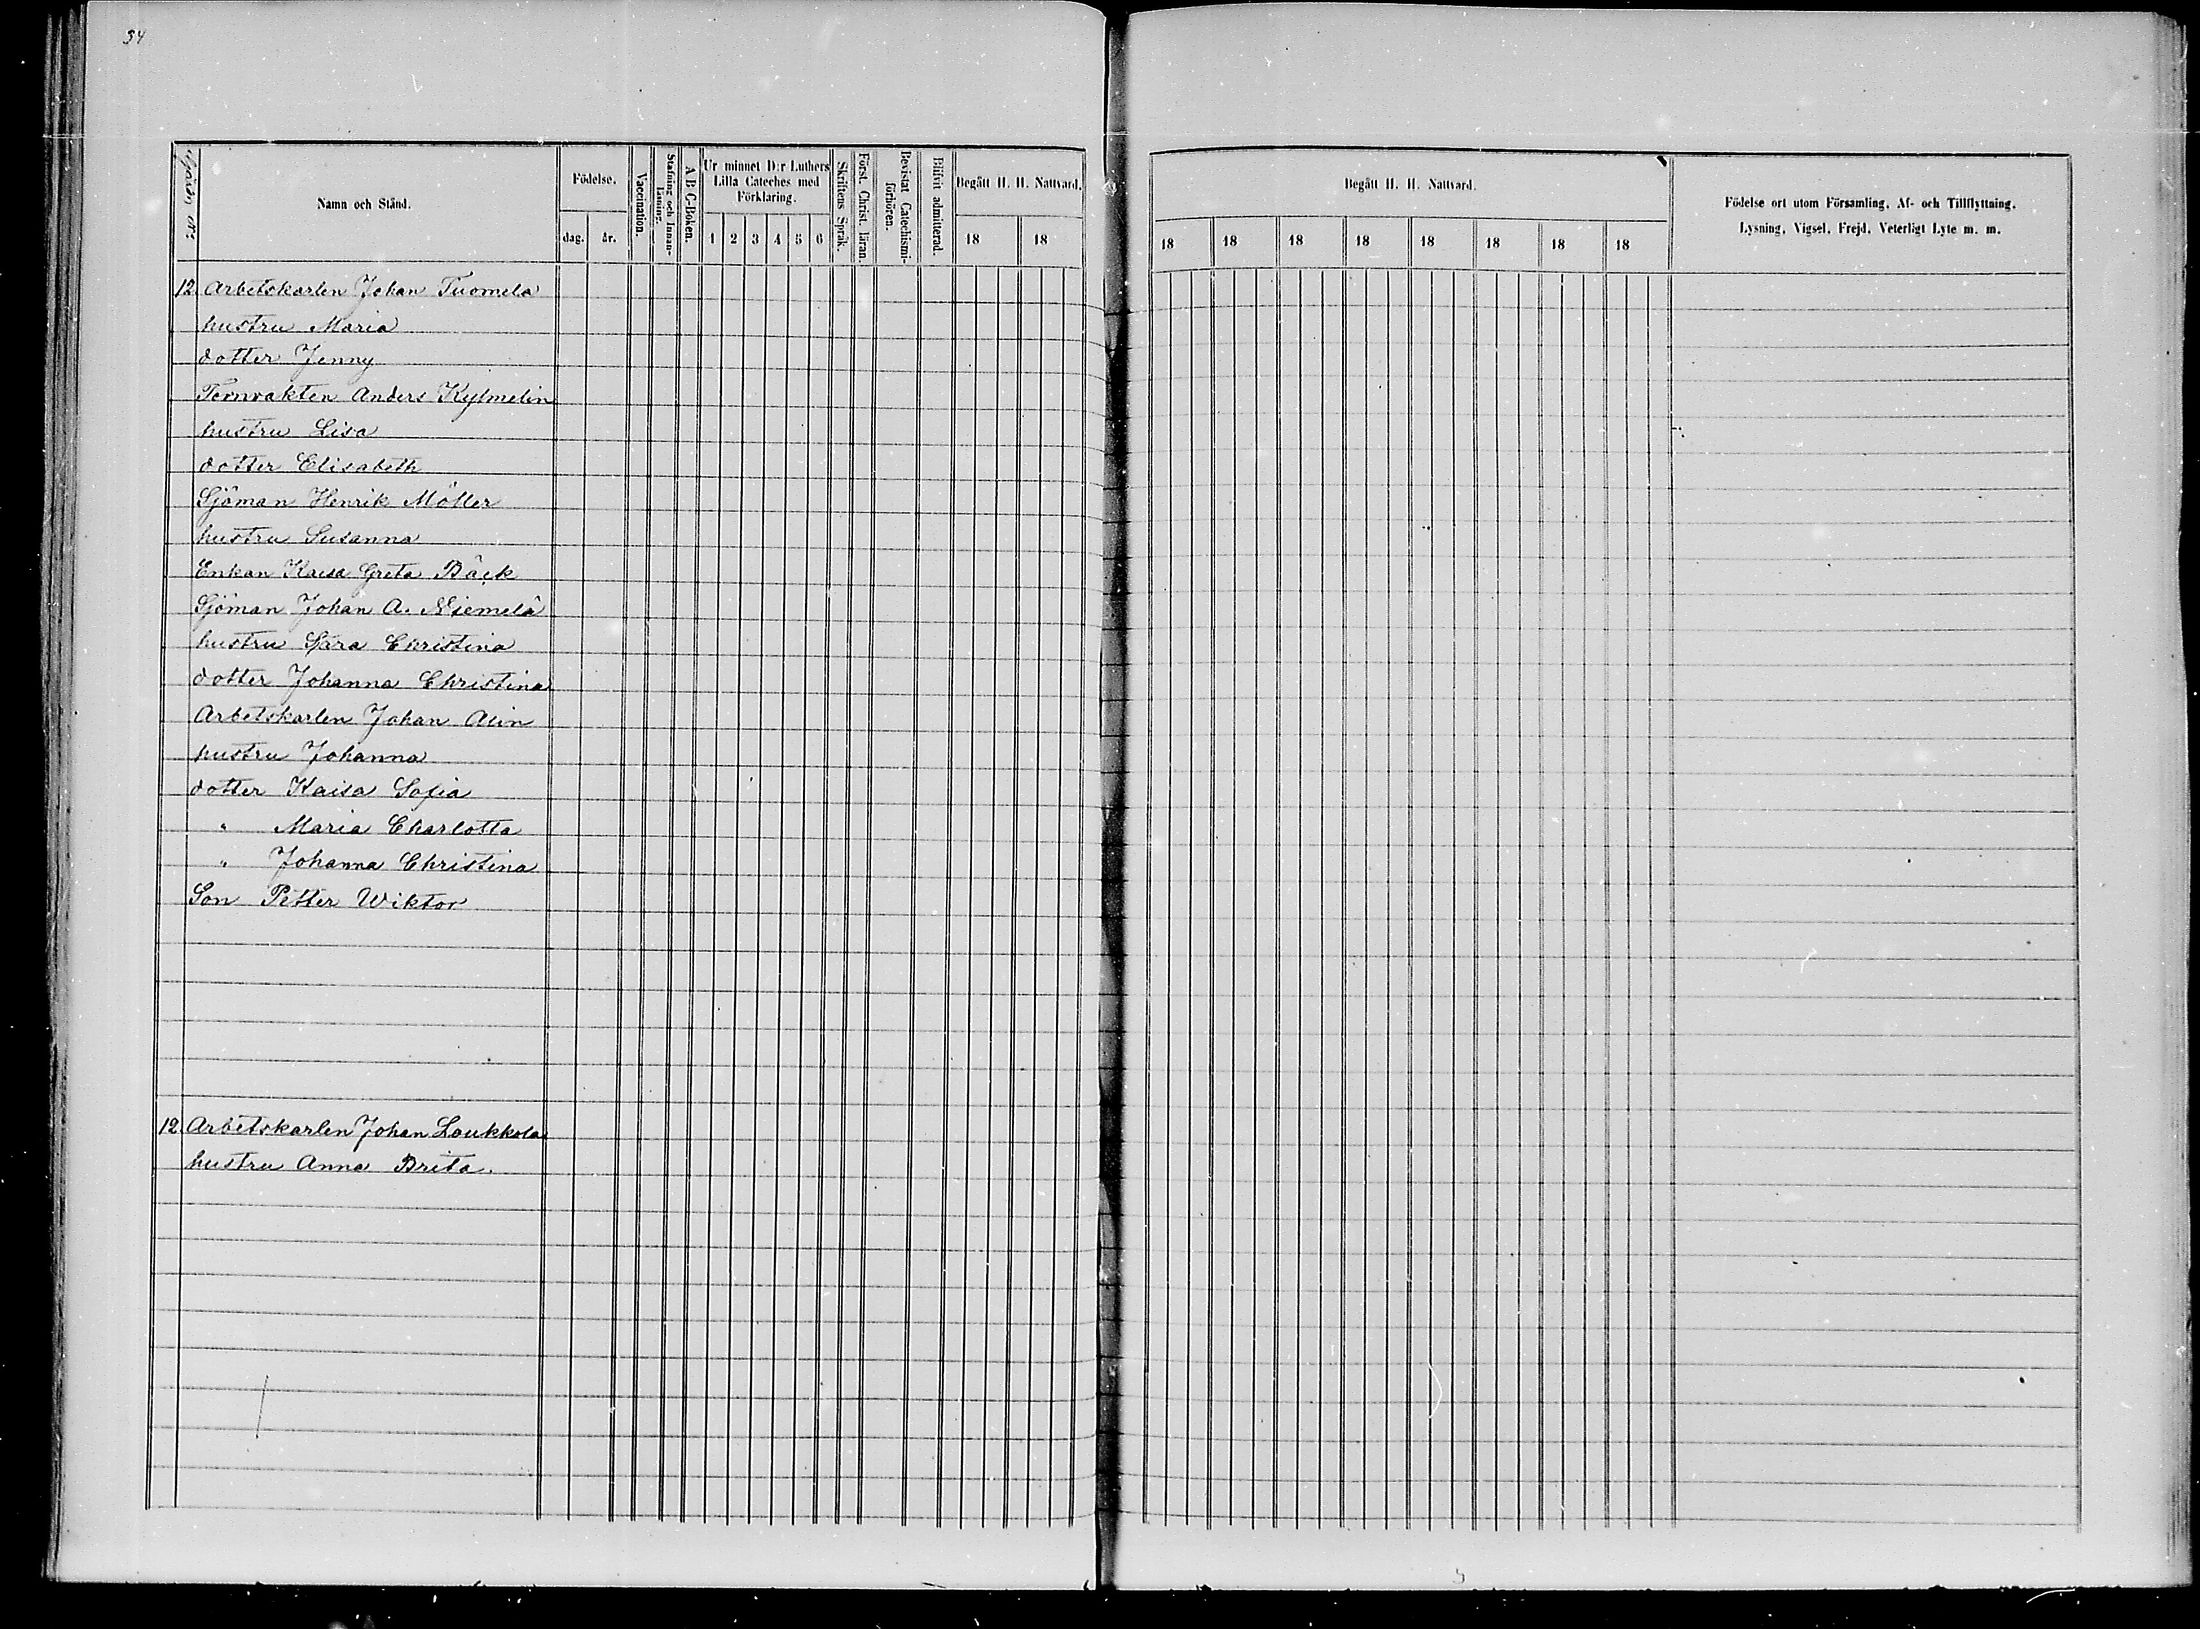 34
Gård N:o
Namn och Stånd.
Födelse.
dag.
år.
Vaccination.
Stafning och Innan-
Läsning.
A B C-Boken.
Ur minnet D:r Luthers
Lilla Cateches med
Förklaring.
1 2 3 4 5 6
Skriftens Språk.
Först. Christ. läran.
Bevistat Catechismi-
förhören.
Blifvit admitterad.
Begått H. H. Nattvard.
18 18
Begått H. H. Nattvard.
18 18 18 18 18 18 18 18
Födelse ort utom Församling, Af- och Tillflyttning.
Lysning, Vigsel, Frejd, Veterligt Lyte m. m.
12 Arbetskarlen Johan Tuomela
hustru Maria
dotter Jenny
Tornvakten Anders Kylmelin
hustru Lisa
dotter Elisabeth
Sjöman Henrik Möller
hustru Susanna
Enkan Kaisa Greta Bäck
Sjöman Johan A. Niemelä
hustru Sara Christina
dotter Johanna Christina
Arbetskarlen Johan Alin
hustru Johanna
dotter Kaisa Sofia
" Maria Charlotta
" Johanna Christina
Son Petter Wiktor
12 Arbetskarlen Johan Laukkola
hustru Anna Brita.